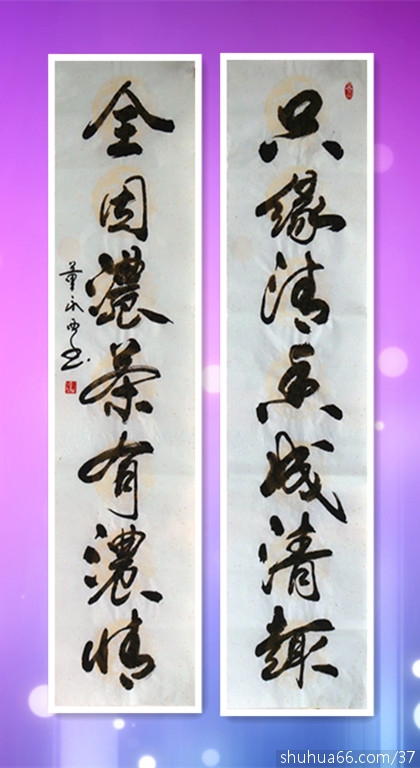 只緣清香成清趣
全因濃茶有濃情
董永西书
shuhua66.com/37